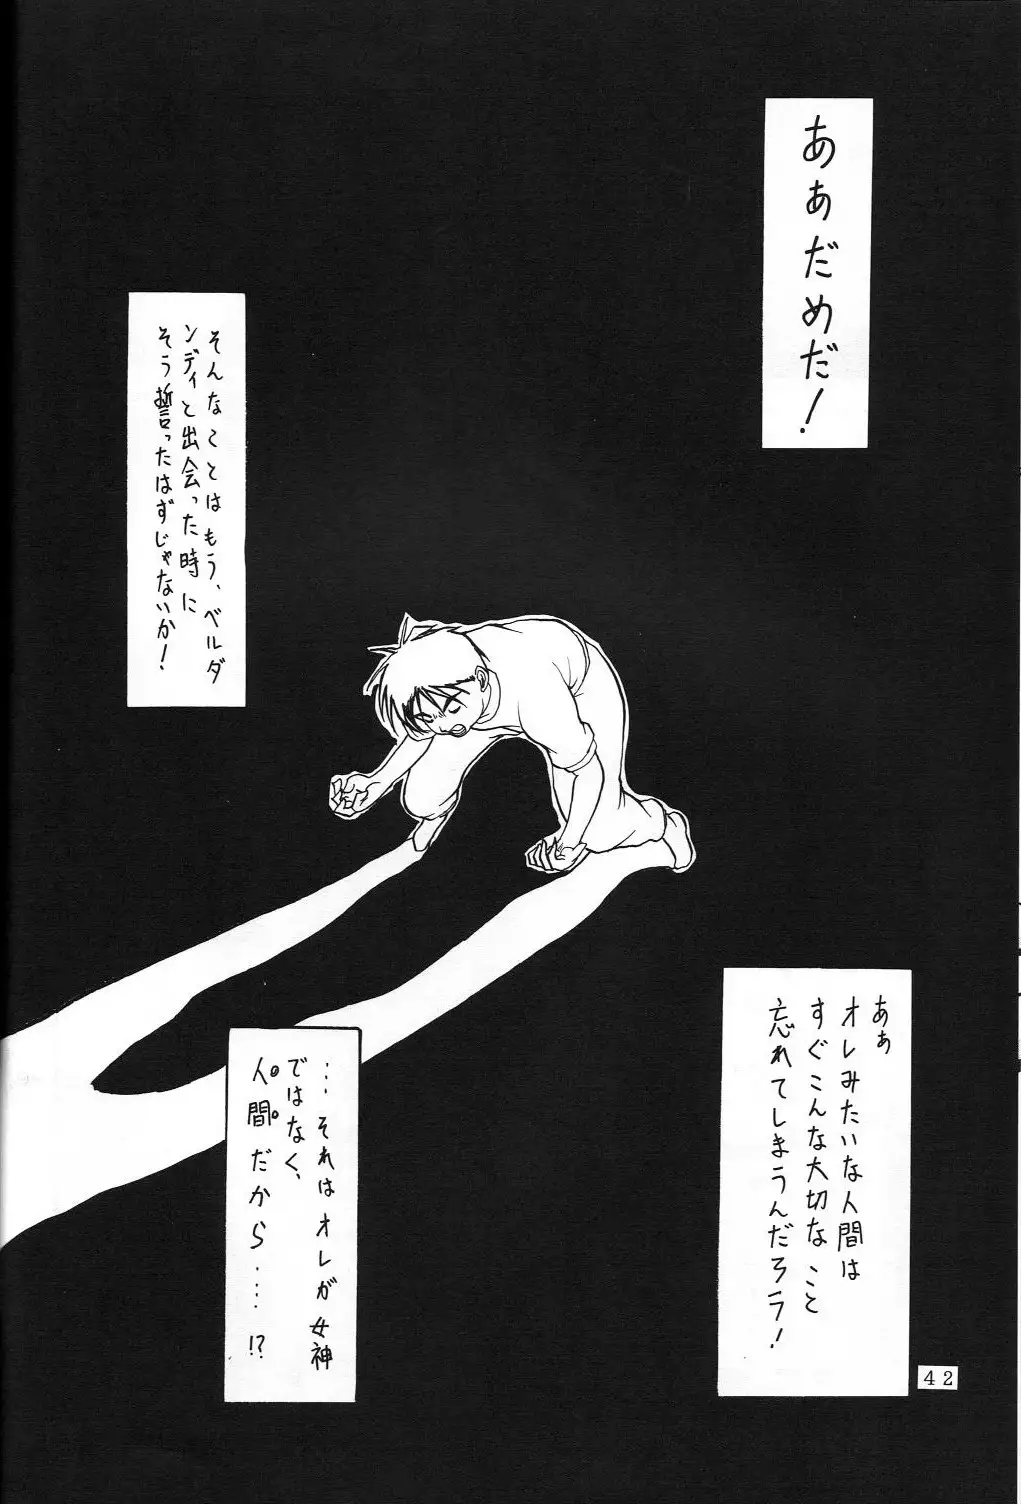 あぁだめだ!
そんなことはもう、ベルダ
ンディと出会った時に
そう誓ったはずじゃないか!
あぁ
オレみたいな人間は
すぐこんな大切なこと
忘れてしまうんだろう!
…それはオレが女神
ではなく、
人間だから……!?
42